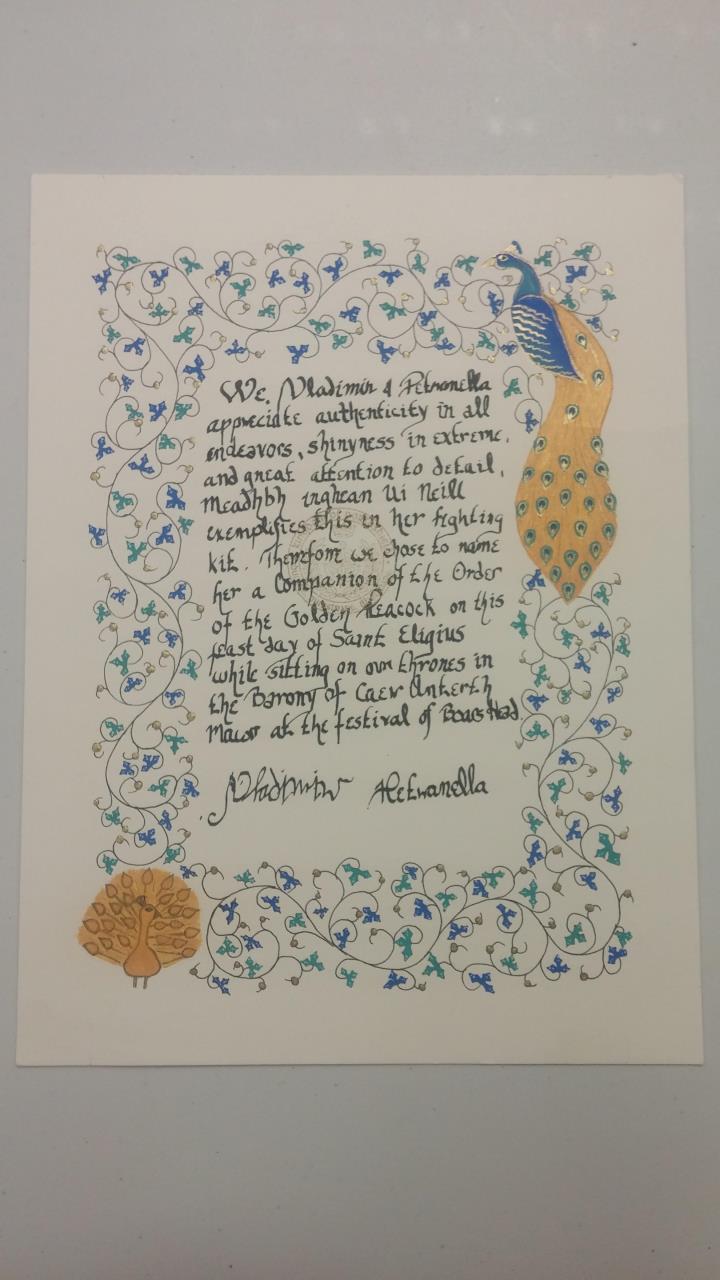 We, Vladimir & Petronella
appreciate authenticity in all
endeavors, shinyness in extreme,
and great attention to detail.
Meadhbh inghean Ui Neill
exemplifies this in her fighting
kit. Therefore we chose to name
her a Companion of the Order
of the Golden Peacock on this
feast day of Saint Eligius
while sitting on our thrones in
the Barony of Caer Anterth
Mawr at the festival of Boars Head.
Vladimir Petranella